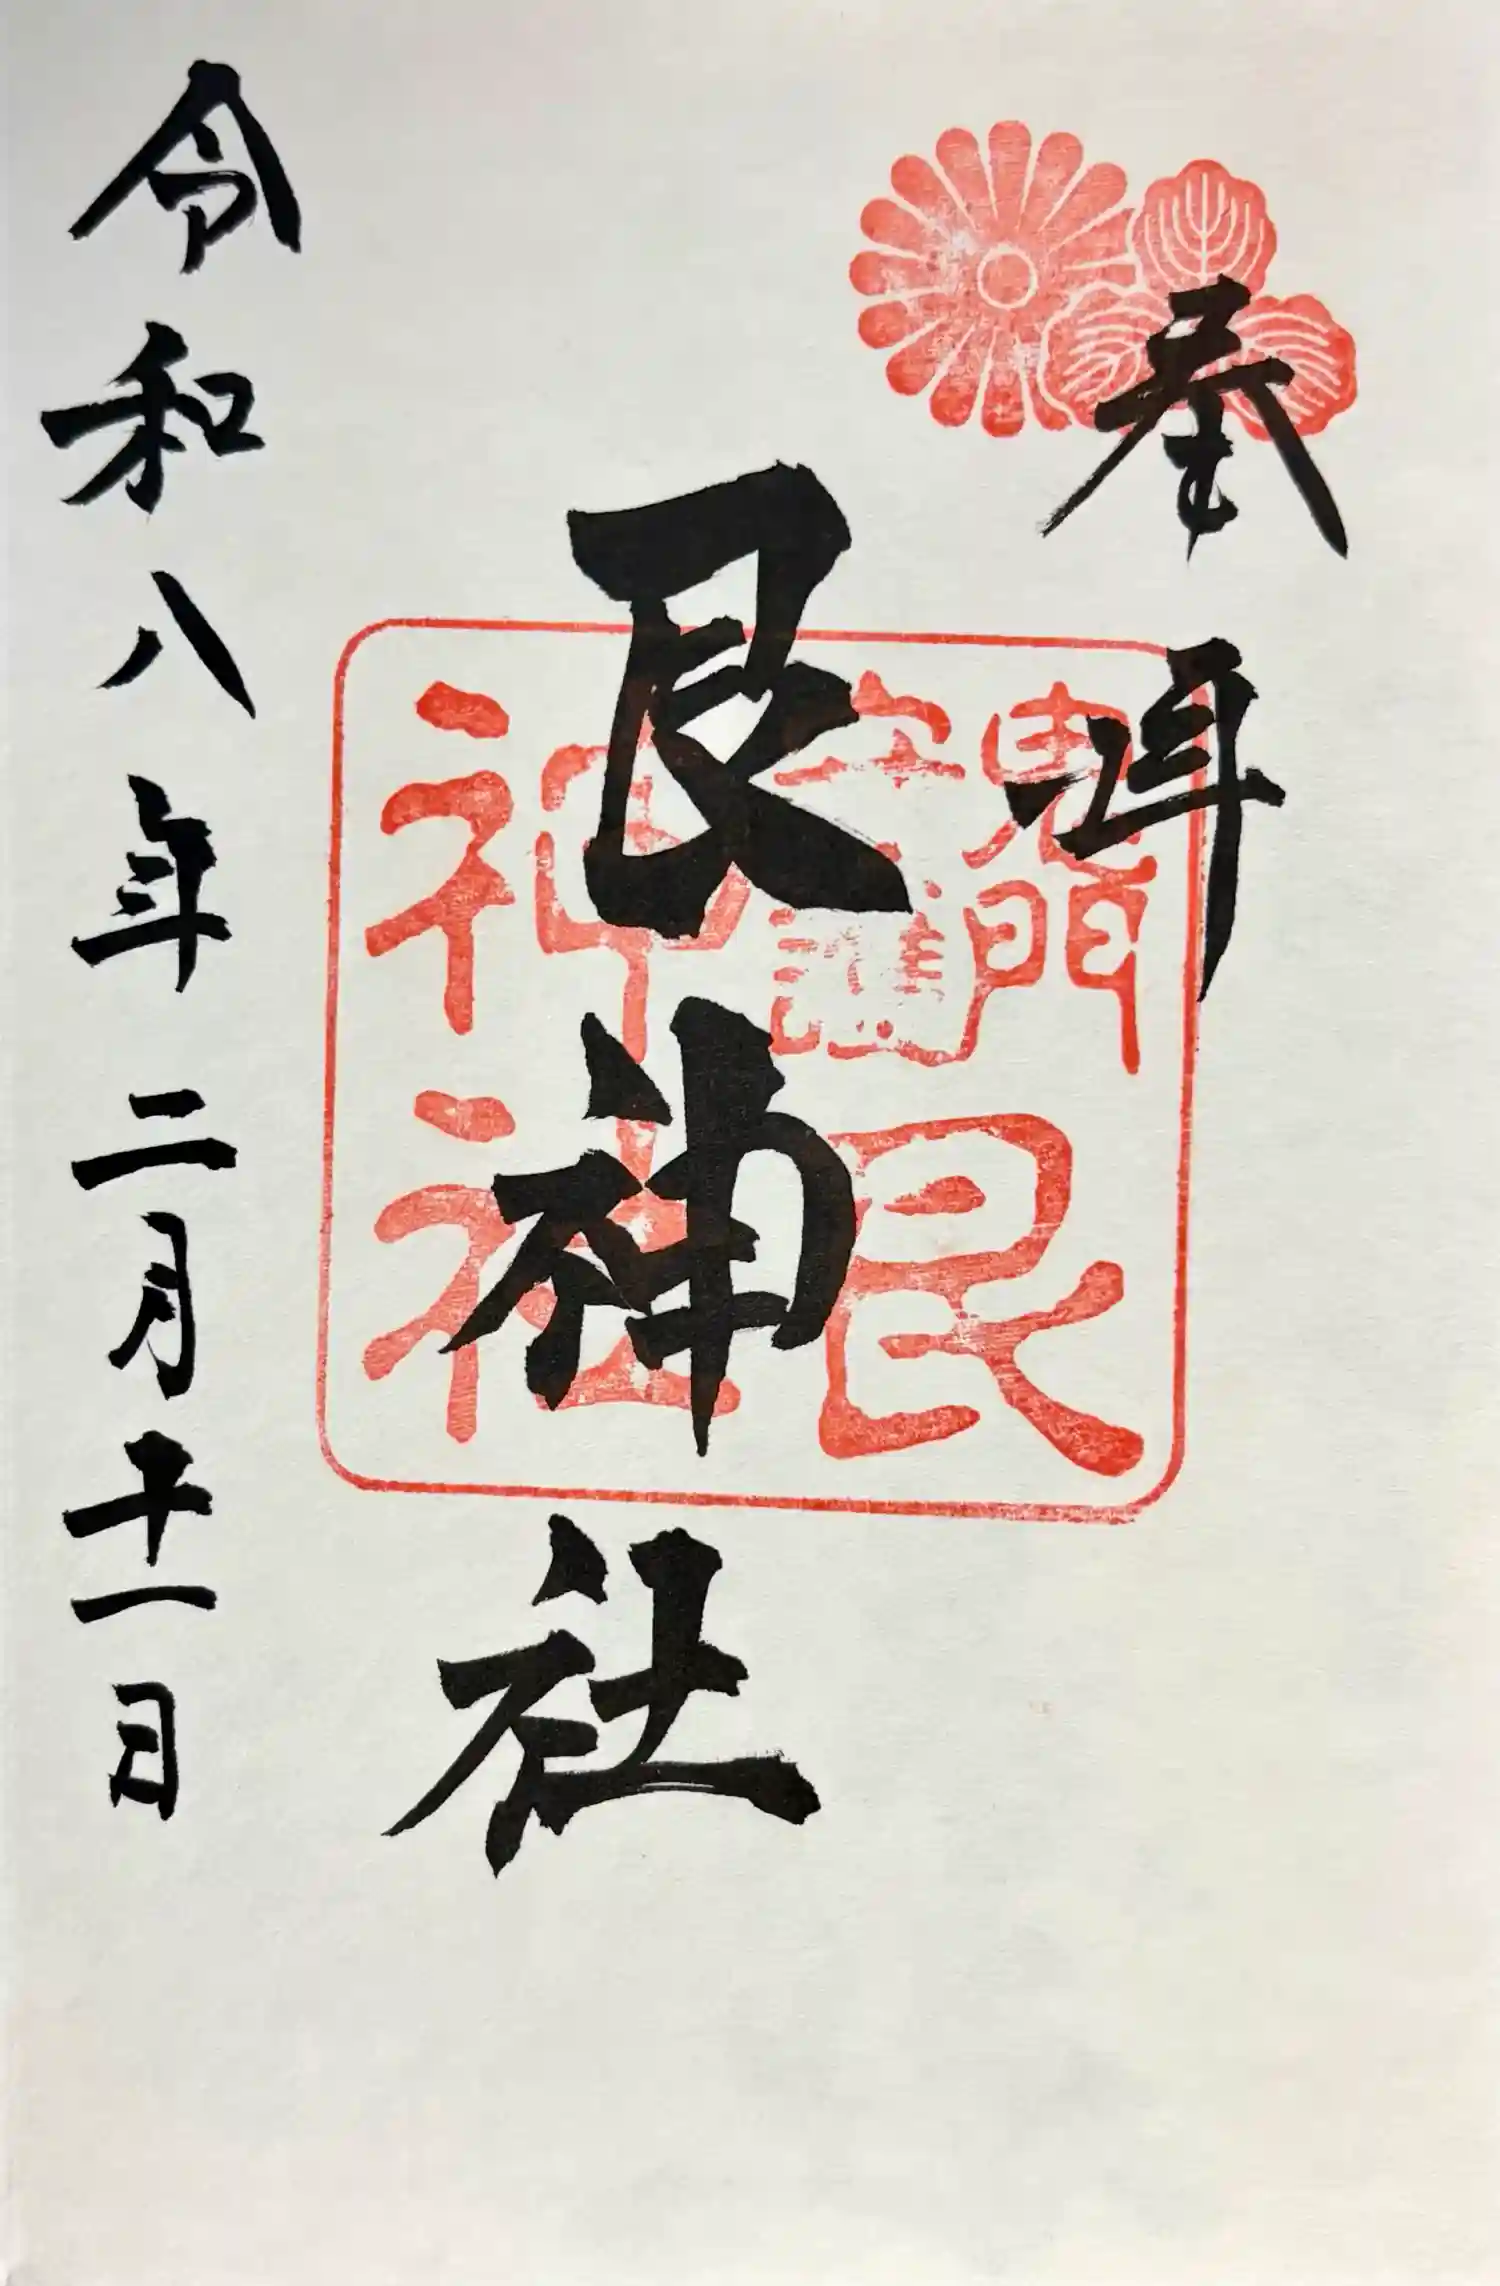 奉拝
鬼門守護
艮神社
艮神社
令和八年二月十一日